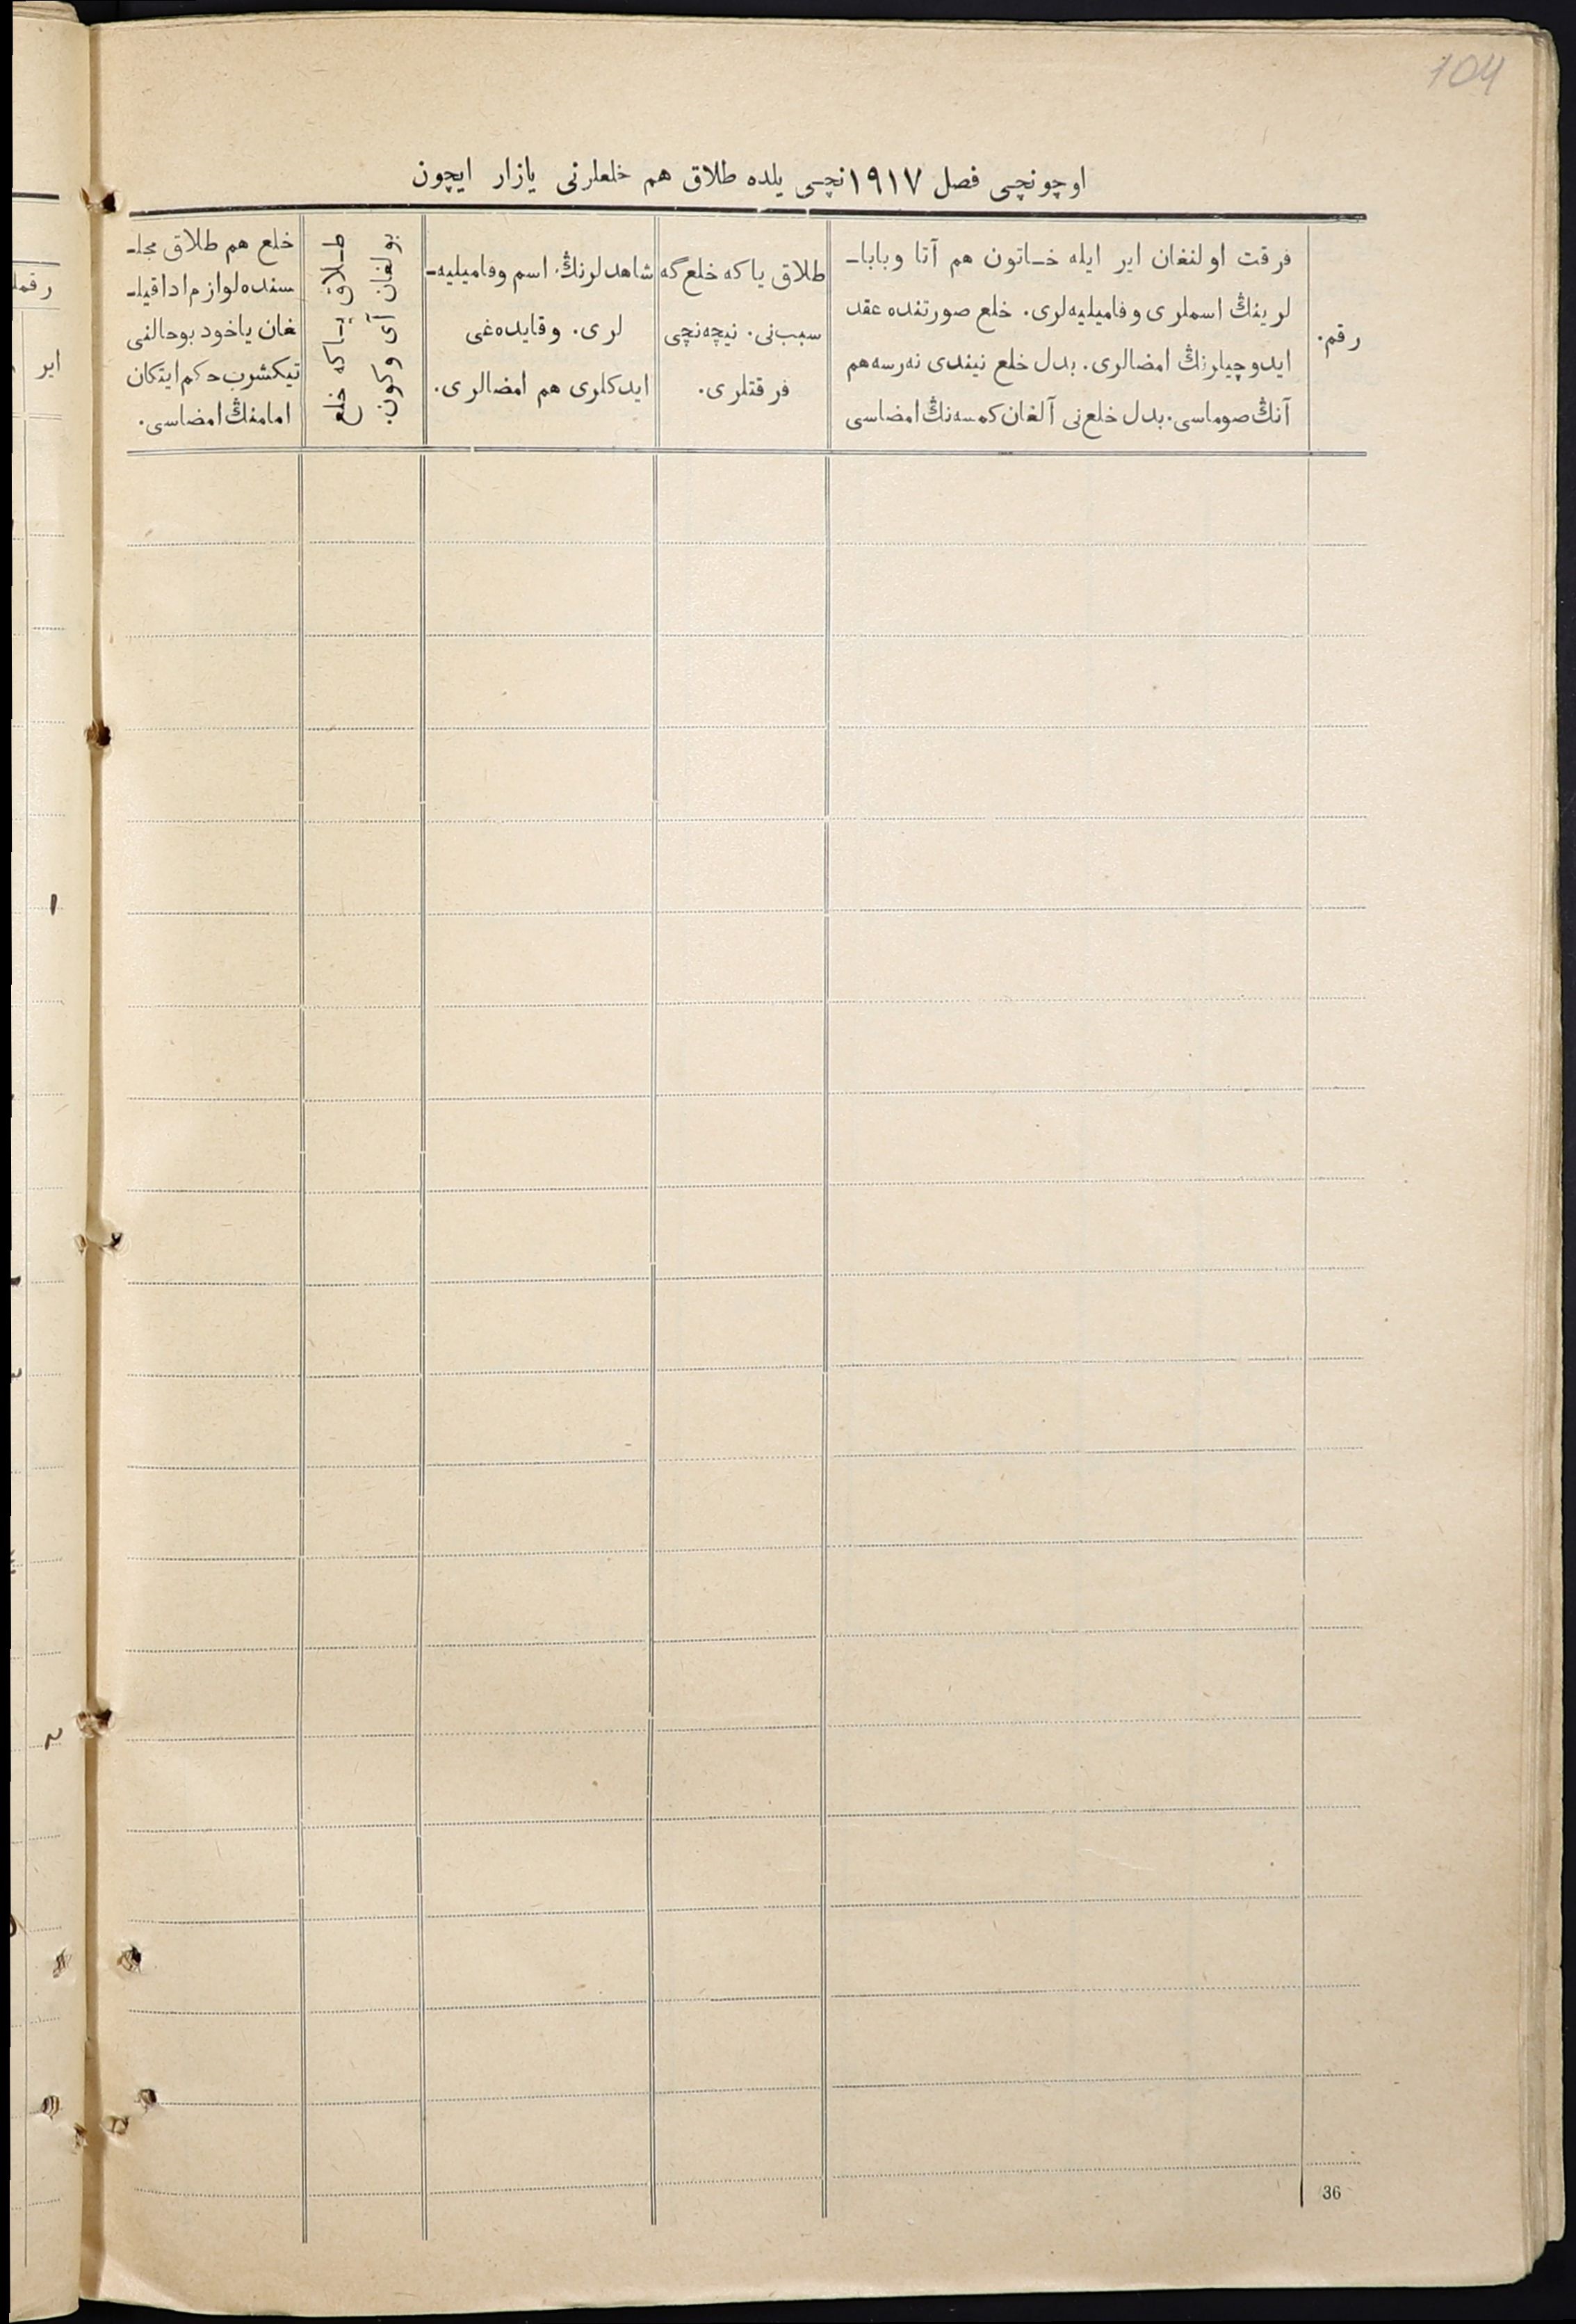 104
اوچونچی فصل ١٩١٧نچی یلده طلاق هم خلعلرنی یازار ایچون
رقم.
فرقت اولنغان ایر ایله خـاتون هم آتا وبابا‌ـ
لرینڭ اسملری وفامیلیه‌لری. خلع صورتنده عقد
ایدوچیلرنڭ امضالری. بدل خلع نیندی نه‌رسه هم
آنڭ صوماسی. بدل خلع‌نی آلغان کمسه‌نڭ امضاسی
طلاق یاکه خلع گه
سبب‌نی. نیچه‌نچی
فرقتلری.
شاهدلرنڭ اسم وفامیلیه‌ـ
لری. وقایده‌غی
ایدکلری هم امضالری.
طـلاق یـاکه خلع
بولغان آی وکون.
خلع هم طلاق مجلـ
سنده لوازم ادا قیلـ
غان یاخود بوحالنی
تیکشرب حکم ایتکان
امامنڭ امضاسی.
36
ایر